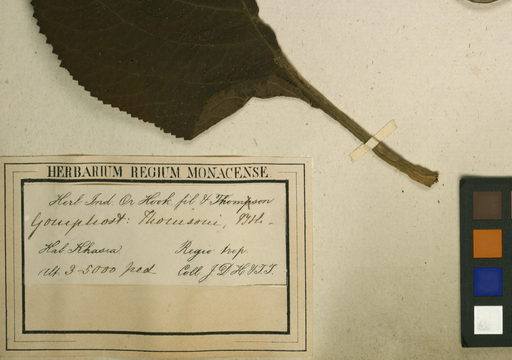 HERBARIUM REGIUM MONACENSE
Herb. Ind. Or Hook fil & Thompson
Gomphost: Thomsoni,
Hab Khasia Regio trop.
Alt. 3-5000 ped Coll J. D. H. & T. T.